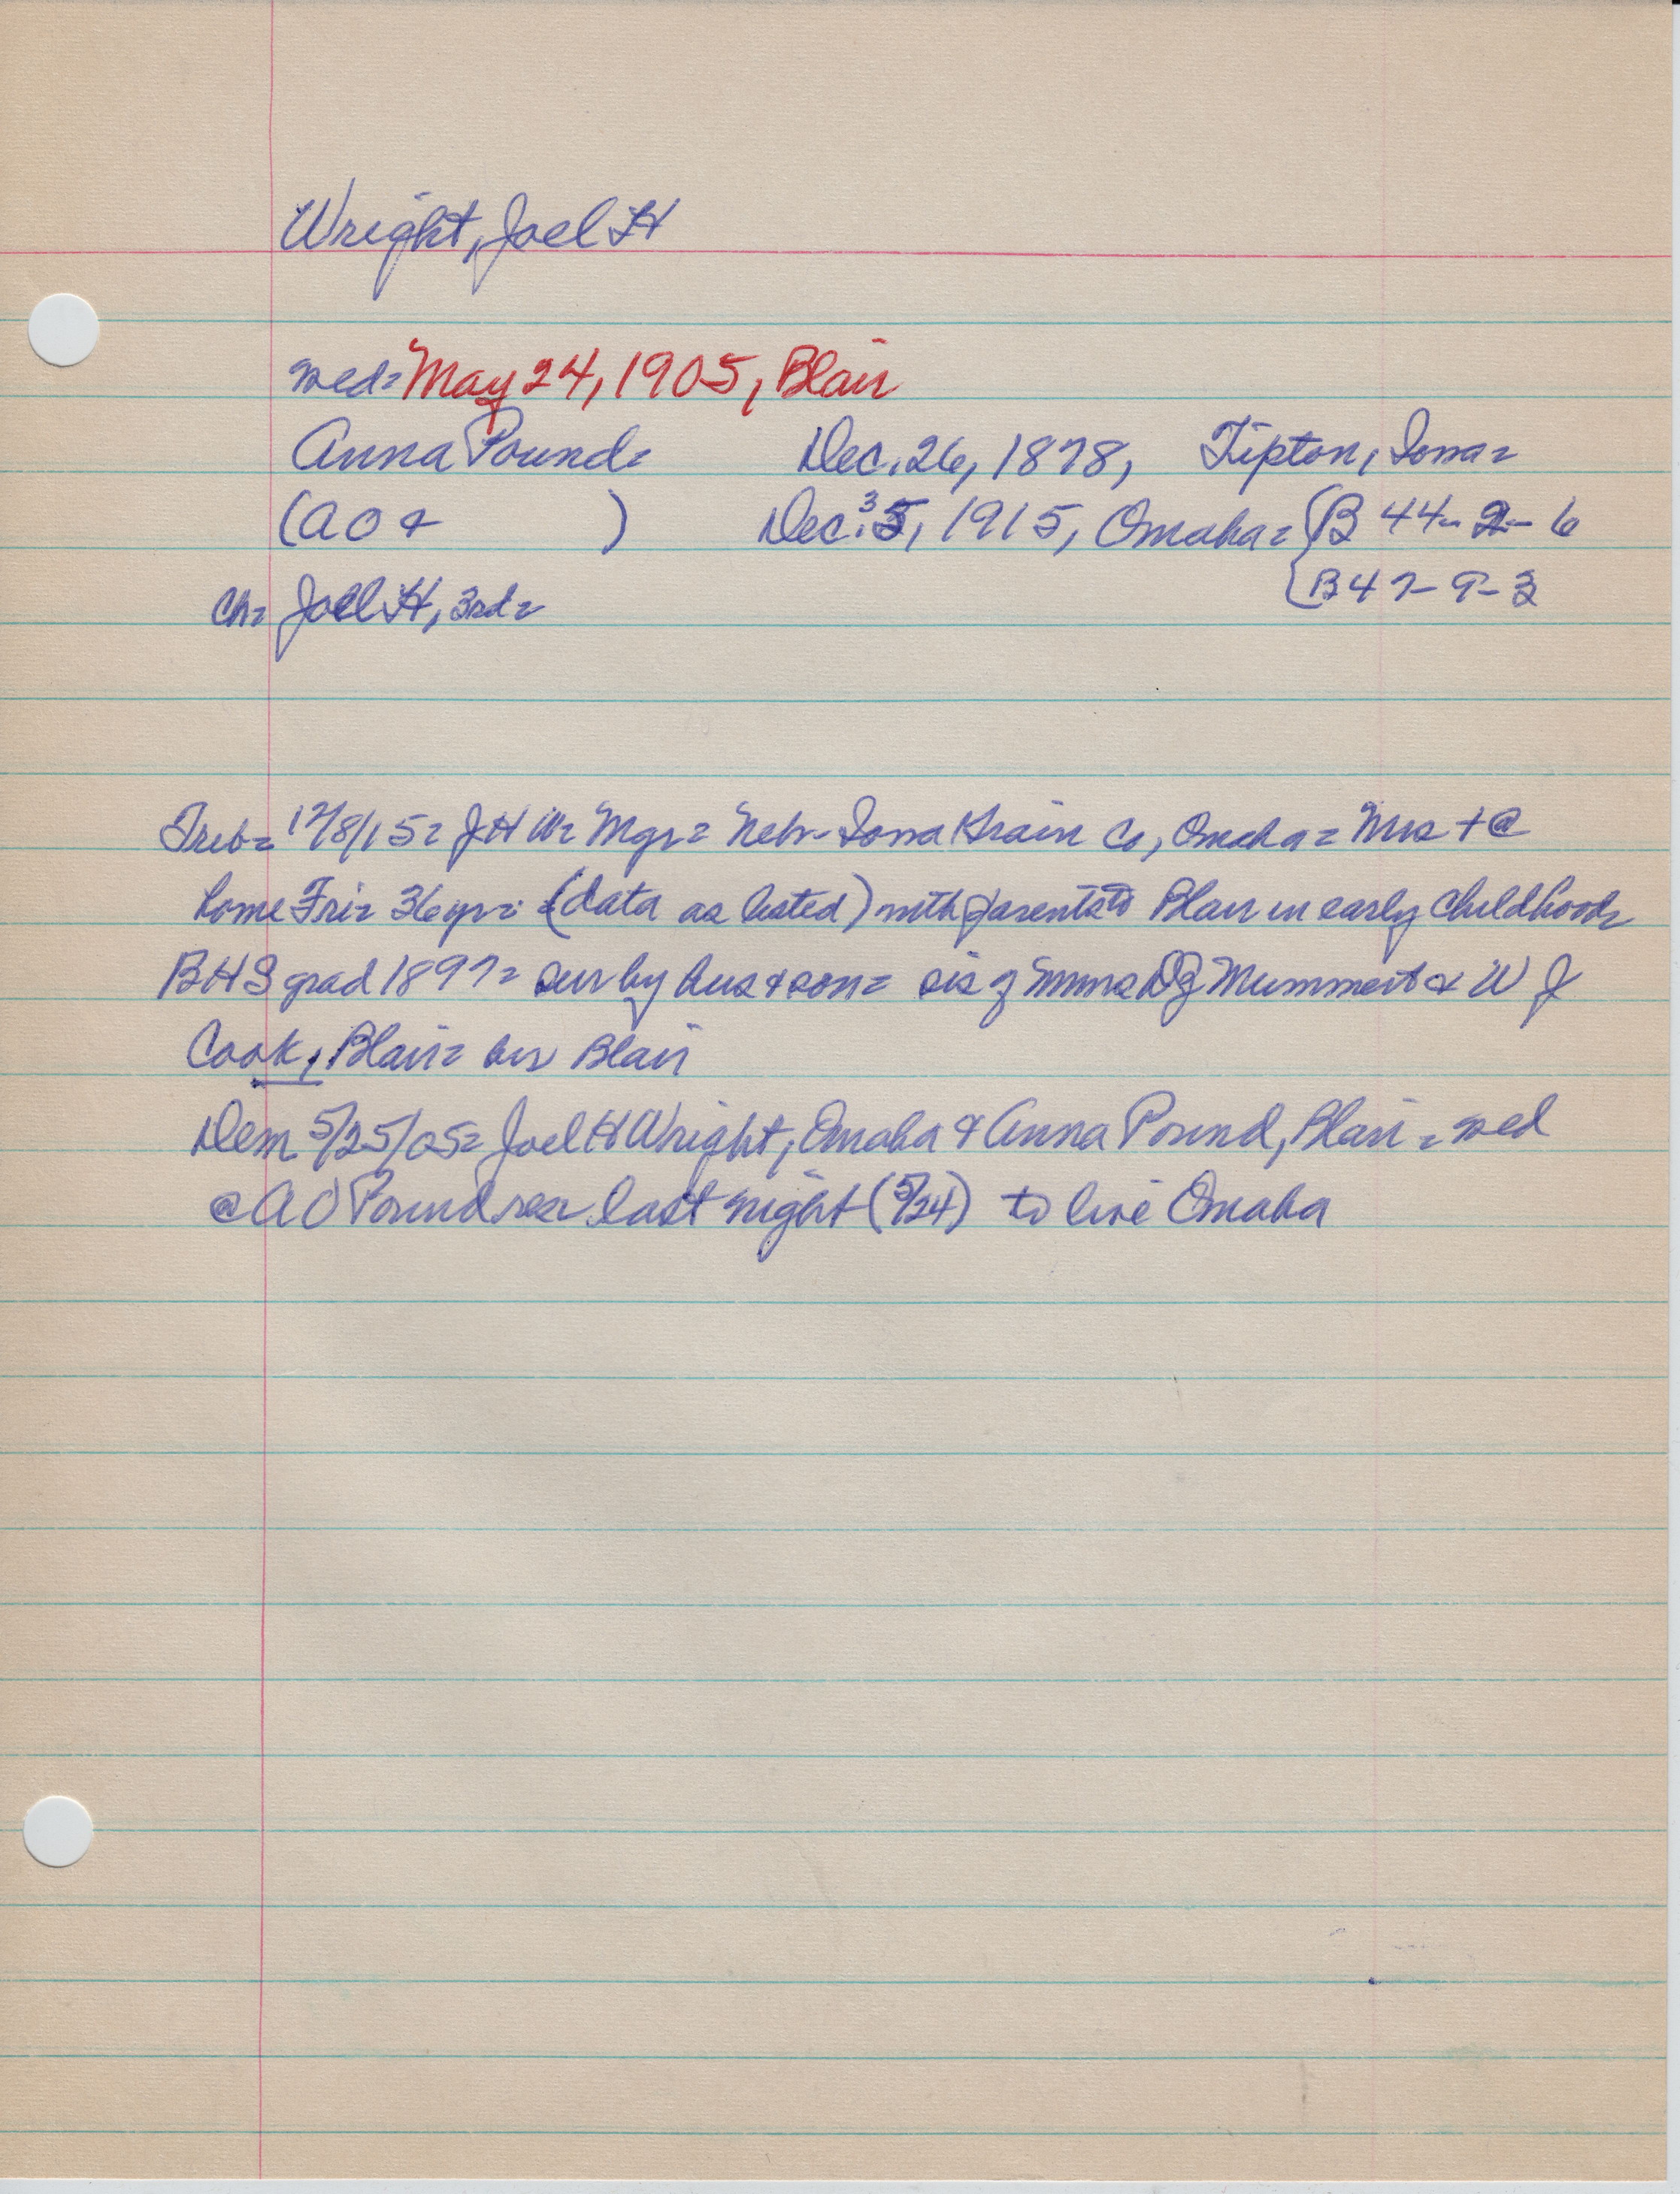 Wright, Joel H
wed= May 24, 1905, Blair
Anna Pound= Dec. 26, 1878, Tipton, Iowa=
(A O & ) Dec. 3, 1915, Omaha= {B 44-2-6
{B 47-9-3
ch= Joel H, 3rd=
Trib= 12/8/15= J H W= Mgr= Nebr-Iowa Grain Co, Omaha= Mrs + @
home Fri= 36 yr= (data as listed) with parents to Blair in early childhood=
BHS grad 1897= sur by hus & son= sis of Mmes D Z Mummert & W J
Cook, Blair= bur Blair
Dem 5/25/05= Joel H Wright, Omaha & Anna Pound, Blair= wed
@ A O Pound res last night (5/24) to live Omaha